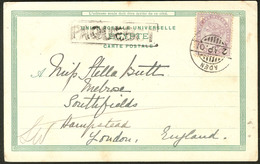 UNION POSTALE UNIVERSELLE
CARTE POSTALE
ADEN
A Miss Stella Butt
Melrose
Southfields
Hampstead
London,
England.